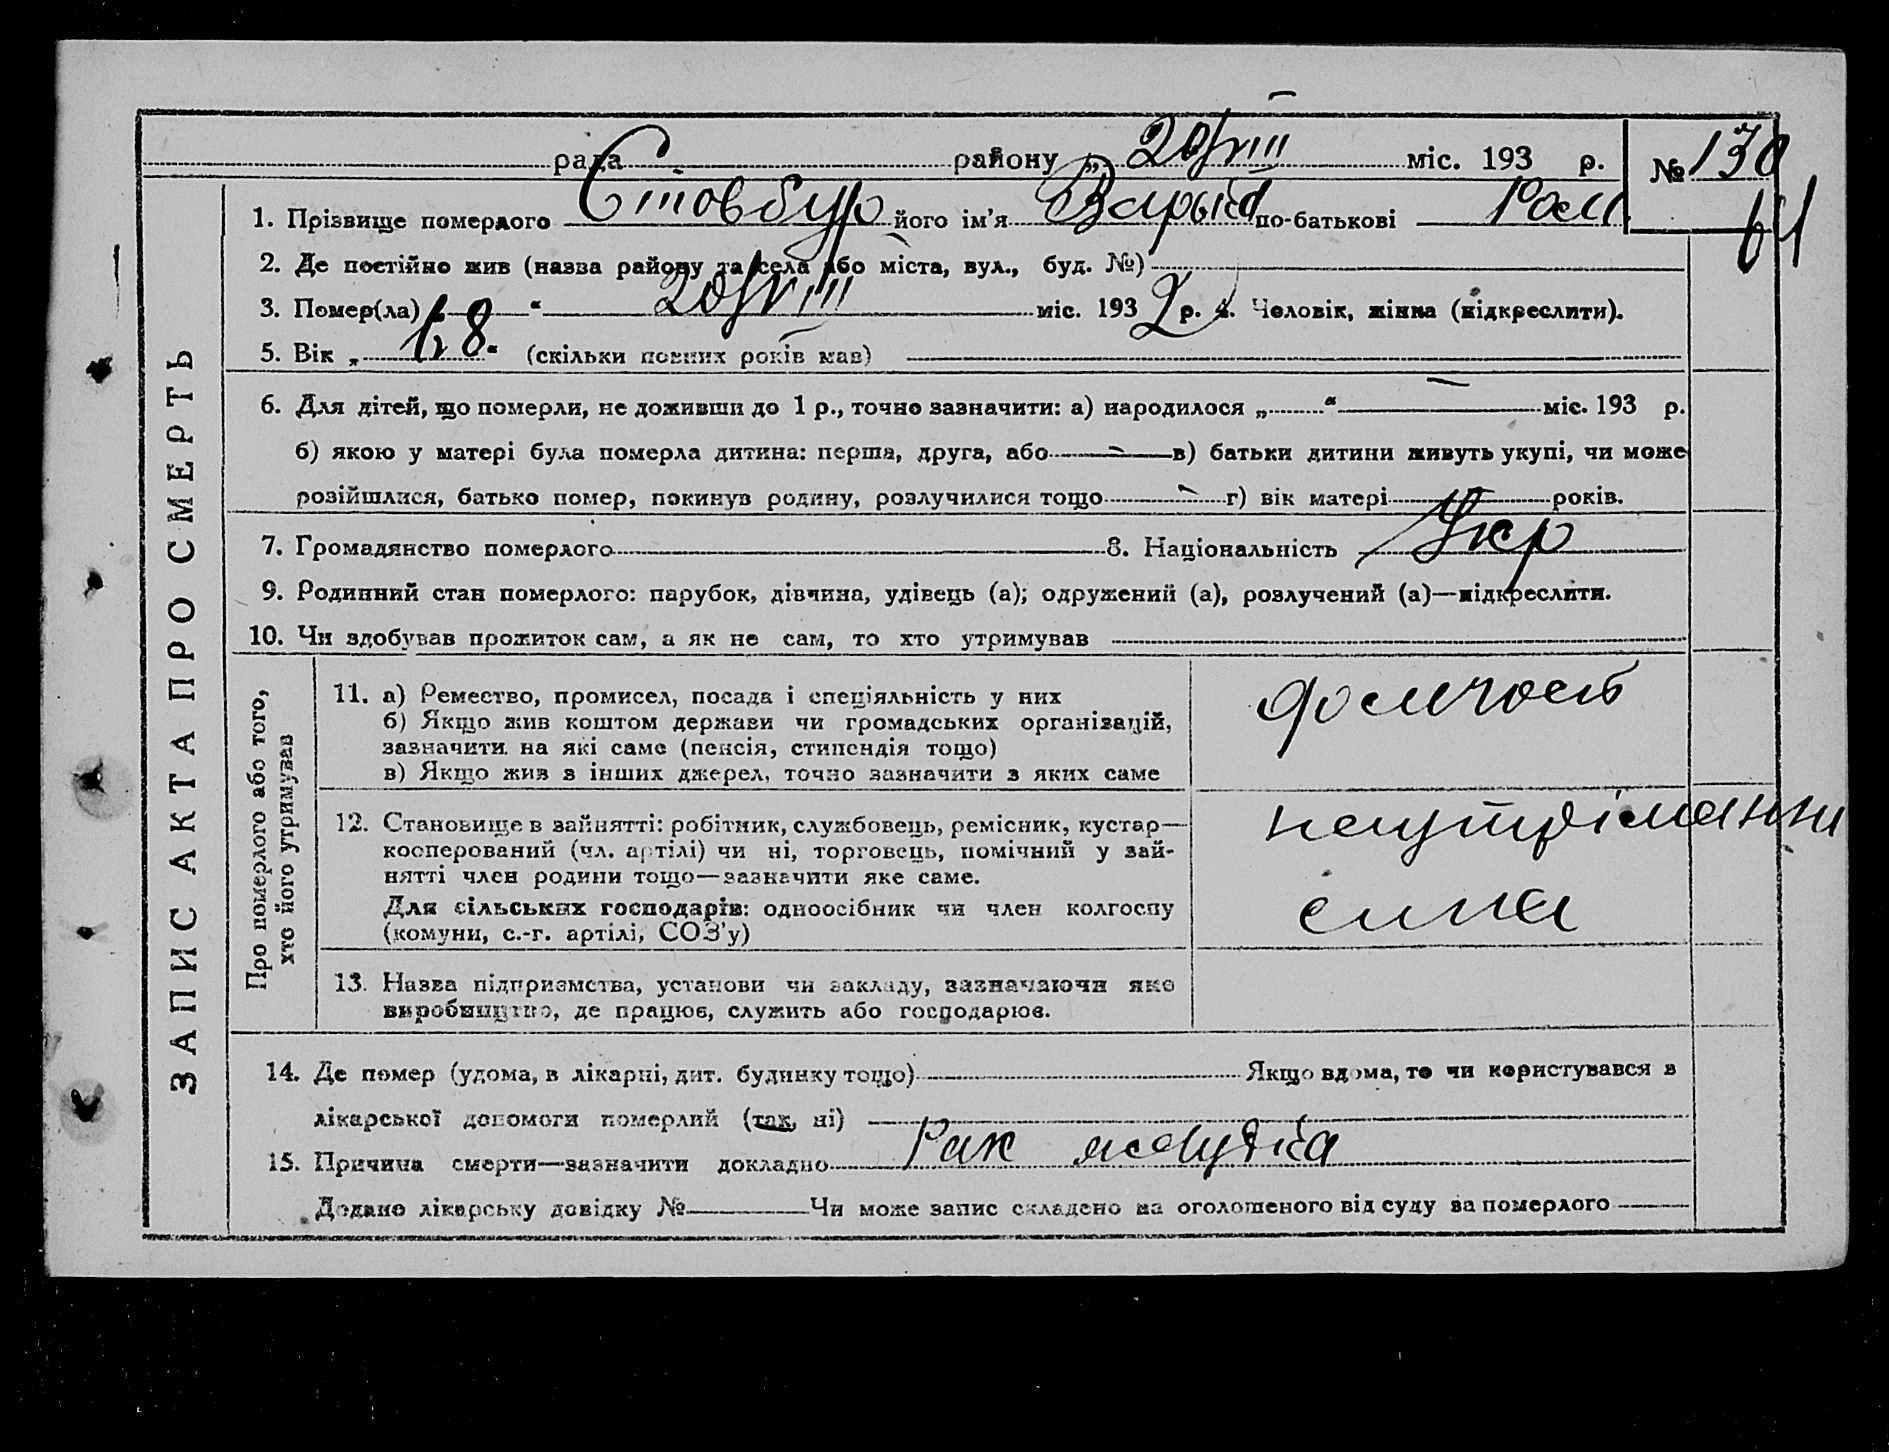 рада района „ 20/VIII міс. 193 р. № 130
61
1. Прізвище померлого Стовбур його ім'я по-батькові Ром
2. Де постійно жив (назва району та села або міста, вул., буд. №)
3. Помер(ла) „ “ 20/VIII міс. 1932 р. 4. Чоловік, жінка (підкреслити).
5. Вік „ 68 “ (скільки повних років мав)
6. Для дітей, що померли, не доживши до 1 р., точно зазначити: а) народилося „ “ міс. 193 р.
б) якою у матері була померла дитина: перша, друга, або в) батьки дитини живуть укупі, чи може
розійшлися, батько помер, покинув родину, розлучилися тощо г) вік матері років.
7. Громадянство померлого 8. Національність Укр
9. Родинний стан померлого: парубок, дівчина, удівець (а); одружений (а), розлучений (а)—підкреслити.
10. Чи здобував прожиток сам, а як не сам, то хто утримував
ЗАПИС АКТА ПРО СМЕРТЬ
Про померлого або того,
хто його утримував
11. а) Ремество, промисел, посада і спеціяльність у них
б) Якщо жив коштом держави чи громадських організацій,
зазначити на які саме (пенсія, стипендія тощо)
в) Якщо жив з інших джерел, точно зазначити з яких саме
домчост
12. Становище в зайнятті: робітник, службовець, ремісник, кустар—
косперований (чл. артілі) чи ні, торговець, помічний у зай-
нятті член родини тощо—зазначити яке саме.
Для сільських господарів: одноосібник чи член колгоспу
(комуни, с.-г. артілі, СОЗ'у)
наутріманни
сина
13. Назва підприємства, установи чи закладу, зазначаючи яке
виробництво, де працює, служить або господарює.
14. Де помер (удома, в лікарні, дит. будинку тощо) Якщо вдома, то чи користувався в
лікарської допомоги померлий (так, ні)
15. Причина смерти—зазначити докладно Рак желудка
Додано лікарську довідку № Чи може запис складено на оголошеного від суду за померлого